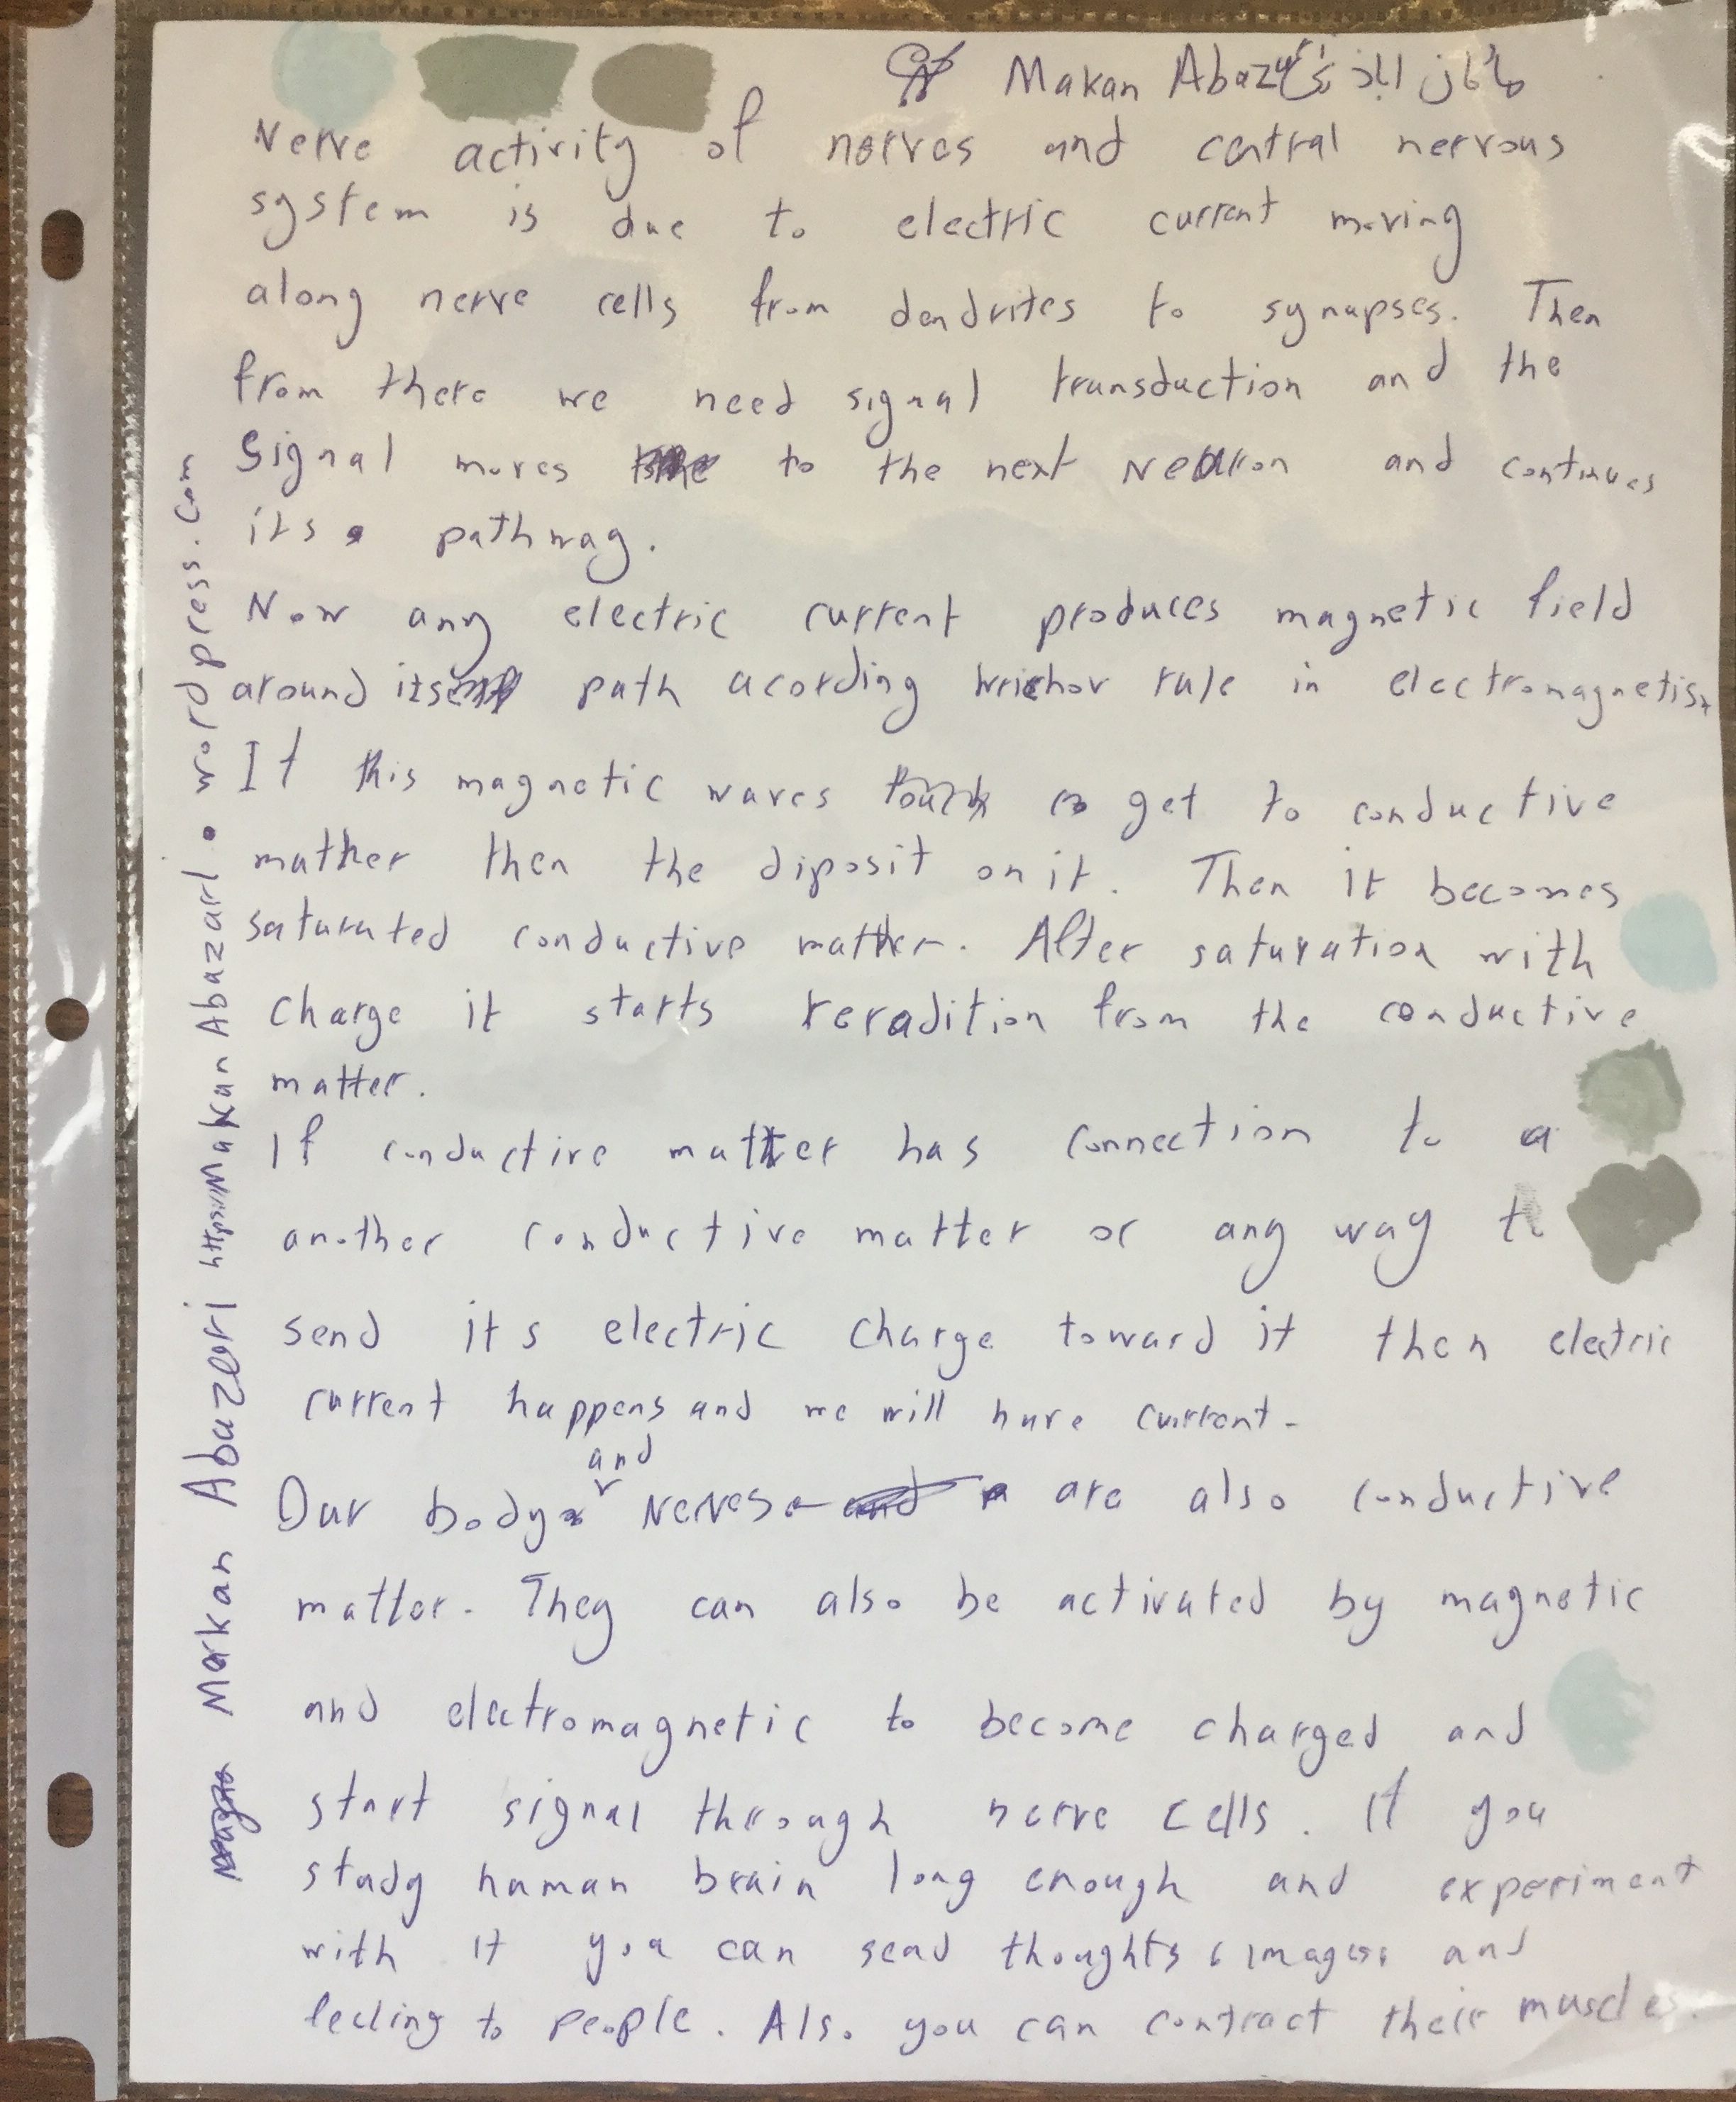 Makan Abazari ماکان اباذری
Nerve activity of nerves and central nervous
system is due to electric current moving
along nerve cells from dendrites to synapses. Then
from there we need signal transduction and the
signal moves to the next Neuron and continues
its pathway.
Now any electric current produces magnetic field
around its path acording rule in electromagnetism
If this magnetic waves get to conductive
mather then the diposit on it. Then it becomes
saturated conductive matter. After saturation with
charge it starts reradition from the conductive
matter.
If conductive matter has connection to a
another conductive matter or any way to
send its electric charge toward it then electric
current happens and we will have current.
and
Our body Nerves are also conductive
matter. They can also be activated by magnetic
and electromagnetic to become charged and
start signal through nerve cells. If you
study human brain long enough and experiment
with it you can send thoughts images and
feeling to people. Also you can contract their muscles.
Makan Abazari https://MakanAbazari.wordpress.com